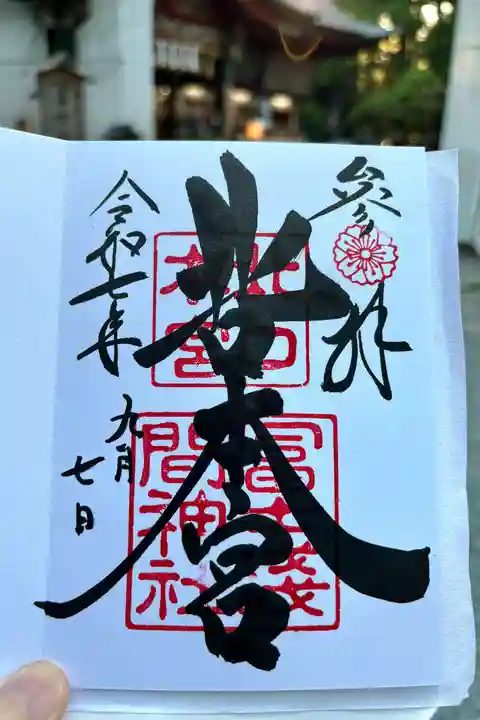 參拜
北口本宮
北口
本宮
冨士淺
間神社
令和七年
九月
七日